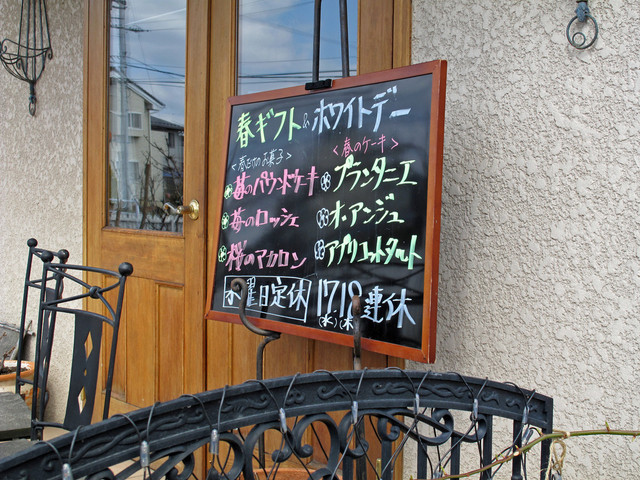 春ギフト&ホワイトデー
<春だけのお菓子>
苺のパウンドケーキ
苺のロッシェ
桜のマカロン
<春のケーキ>
プランタニエ
オ・アンジュ
アプリコットタルト
木曜日定休 17.18連休
(水)(木)